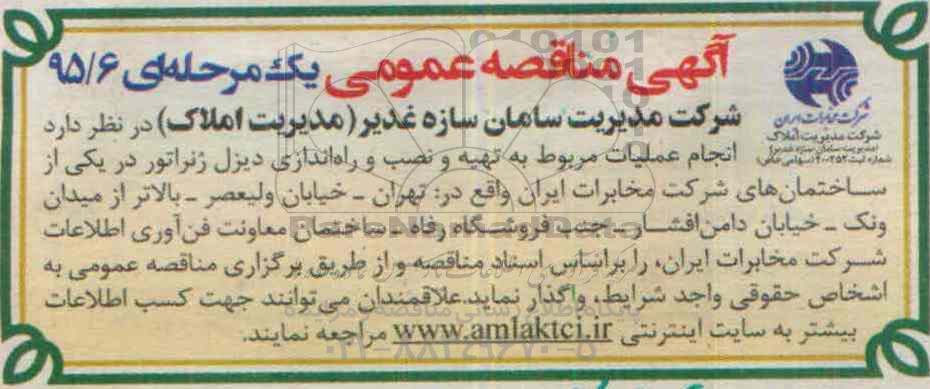 آگهی مناقصه عمومی یک مرحله‌ای ۹۵/۶
شرکت مخابرات ایران
شرکت مدیریت املاک
(مدیریت سامان سازه غدیر)
شماره ثبت ۴۰۰۲۵۲ (سهامی خاص)
شرکت مدیریت سامان سازه غدیر (مدیریت املاک) در نظر دارد
انجام عملیات مربوط به تهیه و نصب و راه‌اندازی دیزل ژنراتور در یکی از
ساختمان‌های شرکت مخابرات ایران واقع در: تهران ـ خیابان ولیعصر ـ بالاتر از میدان
ونک ـ خیابان دامن‌افشار ـ جنب فروشگاه رفاه ـ ساختمان معاونت فن‌آوری اطلاعات
شرکت مخابرات ایران، را براساس اسناد مناقصه و از طریق برگزاری مناقصه عمومی به
اشخاص حقوقی واجد شرایط، واگذار نماید. علاقمندان می‌توانند جهت کسب اطلاعات
بیشتر به سایت اینترنتی www.amlaktci.ir مراجعه نمایند.
۰۲۱-۸۸۳۴۹۶۷۰-۵